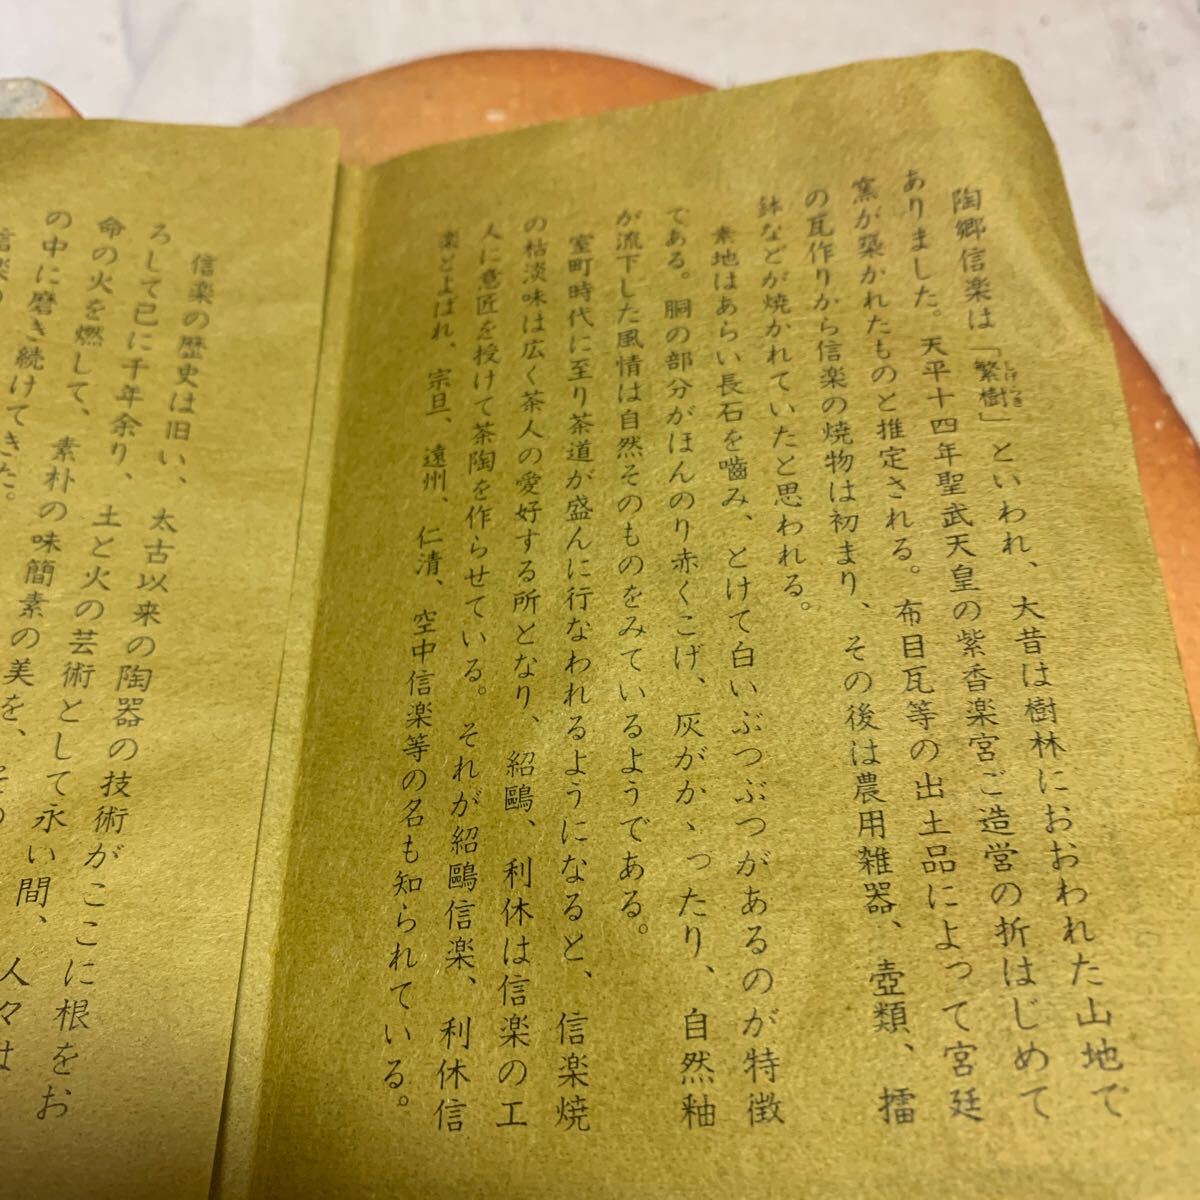 陶郷信楽は「繁樹」といわれ、大昔は樹林におおわれた山地で
しげつき
ありました。天平十四年聖武天皇の紫香楽宮ご造営の折はじめて
窯が築かれたものと推定される。布目瓦等の出土品によって宮廷
の瓦作りから信楽の焼物は初まり、その後は農用雑器、壺類、擂
鉢などが焼かれていたと思われる。
素地はあらい長石を噛み、とけて白いぶつぶつがあるのが特徴
である。胴の部分がほんのり赤くこげ、灰がかゝったり、自然釉
が流下した風情は自然そのものをみているようである。
室町時代に至り茶道が盛んに行なわれるようになると、信楽焼
の枯淡味は広く茶人の愛好する所となり、紹鷗、利休は信楽の工
人に意匠を授けて茶陶を作らせている。それが紹鷗信楽、利休信
楽とよばれ、宗旦、遠州、仁清、空中信楽等の名も知られている。
信楽の歴史は旧い、太古以来の陶器の技術がここに根をお
ろして已に千年余り、土と火の芸術として永い間、人々は
命の火を燃して、素朴の味簡素の美を、その
の中に磨き続けてきた。
信楽の